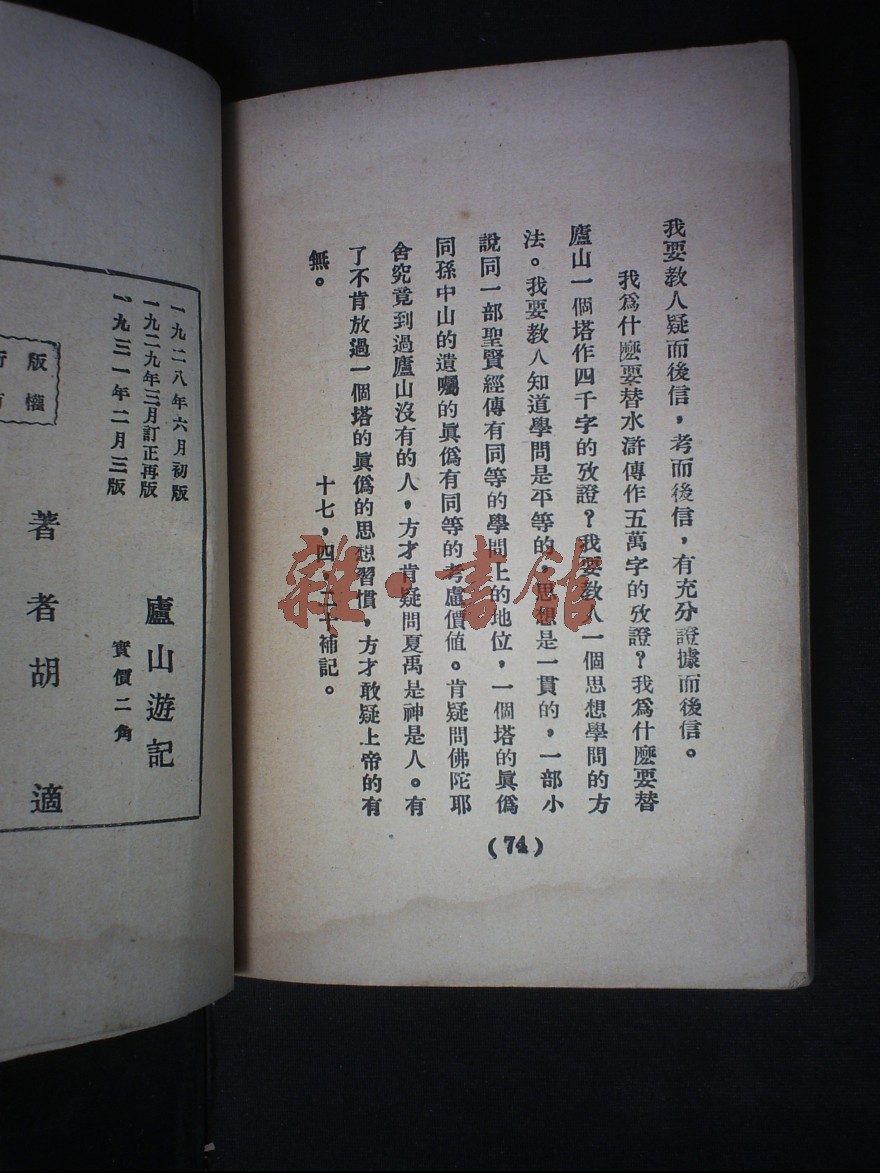 我要教人疑而後信，考而後信，有充分證據而後信。
我爲什麽要替水滸傳作五萬字的攷證？我爲什麽要替
廬山一個塔作四千字的攷證？我要教人一個思想學問的方
法。我要教人知道學問是平等的，思想是一貫的，一部小
說同一部聖賢經傳有同等的學問上的地位，一個塔的眞僞
同孫中山的遺囑的眞僞有同等的考慮價値。肯疑問佛陀耶
舍究竟到過廬山沒有的人，方才肯疑問夏禹是神是人。有
了不肯放過一個塔的眞僞的思想習慣，方才敢疑上帝的有
無。
十七，四，二十補記。
(74)
一九二八年六月初版
一九二九年三月訂正再版
一九三一年二月三版
廬山遊記
實價二角
著者胡適
版權
雜·書館